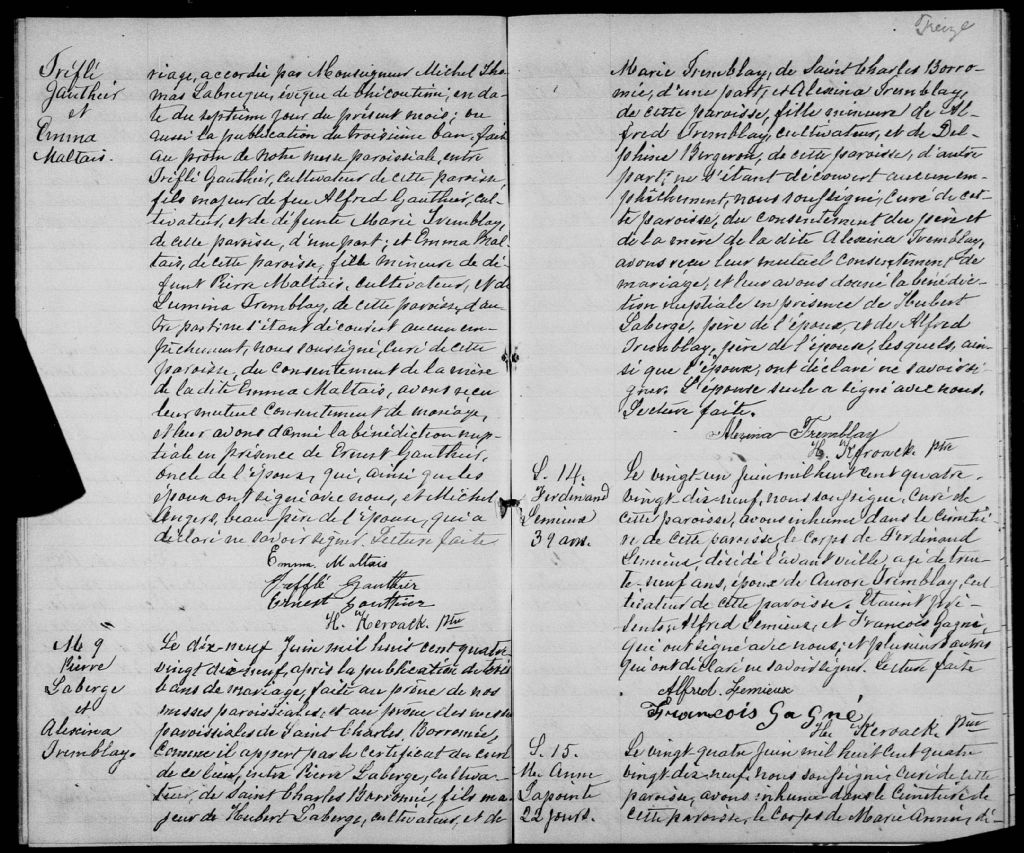 Tréflé
Gauthier
et
Emma
Maltais.
riage, accordée par Monseigneur Michel Tho
mas Labrecque, évêque de Chicoutimi, en da
te du septième jour du présent mois; vu
aussi la publication du troisième ban, faite
au prône de notre messe paroissiale, entre
Tréflé Gauthier, cultivateur de cette paroisse,
fils majeur de feu Alfred Gauthier, cul-
tivateur, et de défunte Marie Tremblay,
de cette paroisse, d'une part; et Emma Mal-
tais, de cette paroisse, fille mineure de dé-
funt Pierre Maltais, cultivateur, et de
Lumina Tremblay, de cette paroisse, d'au
tre part; ne s'étant découvert aucun em-
pêchement, nous soussigné, Curé de cette
paroisse, du consentement de la mère
de la dite Emma Maltais, avons reçu
leur mutuel consentement de mariage,
et leur avons donné la bénédiction nup-
tiale en présence de Ernest Gauthier,
oncle de l'époux, qui, ainsi que les
époux ont signé avec nous, et Michel
Angers, beau-père de l'épouse, qui a
déclaré ne savoir signer. Lecture faite
Emma Maltais
Trefflé Gauthier
Ernest Gauthier
H. Keroack ptre
M 9
Pierre
Laberge
et
Alexina
Tremblay.
Le dix-neuf Juin mil huit cent quatre
vingt dix neuf, après la publication de trois
bans de mariage, faite au prône de nos
messes paroissiales, et au prône des messes
paroissiales de Saint Charles Borromée,
comme il appert par le certificat du curé
de ce lieu, entre Pierre Laberge, cultiva-
teur, de Saint Charles Borromée, fils ma
jeur de Hubert Laberge, cultivateur, et de
Treize
Marie Tremblay, de Saint Charles Borro-
mée, d'une part, et Alexina Tremblay,
de cette paroisse, fille mineure de Al-
fred Tremblay, cultivateur, et de Del-
phine Bergeron, de cette paroisse, d'autre
part; ne s'étant découvert aucun em-
pêchement, nous soussigné, Curé de cet-
te paroisse, du consentement du père et
de la mère de la dite Alexina Tremblay,
avons reçu leur mutuel consentement de
mariage, et leur avons donné la bénédic-
tion nuptiale en présence de Hubert
Laberge, père de l'époux, et de Alfred
Tremblay, père de l'épouse, lesquels, ain-
si que l'époux, ont déclaré ne savoir si-
gner. L'épouse seule a signé avec nous.
Lecture faite.
Alexina Tremblay
H. Kéroack ptre
S. 14.
Ferdinand
Lemieux
39 ans.
Le vingt-un juin mil huit cent quatre-
vingt-dix-neuf, nous soussigné, Curé de
cette paroisse, avons inhumé dans le cimetiè-
re de cette paroisse le corps de Ferdinand
Lemieux, décédé l'avant veille, agé de tren-
te-neuf ans, époux de Aurore Tremblay, cul
tivateur de cette paroisse. Etaient pré-
sents, Alfred Lemieux, et François Gagné,
qui ont signé avec nous, et plusieurs autres
qui ont déclaré ne savoir signer. Lecture faite
Alfred. Lemieux
François Gagné
Hri Keroack ptre
S. 15.
Mie Anne
Lapointe
22 jours.
Le vingt quatre juin mil huit cent quatre
vingt-dix-neuf, nous soussigné, Curé de cette
paroisse, avons inhumé dans le Cimetière de
cette paroisse, le corps de Marie Anne, dé-